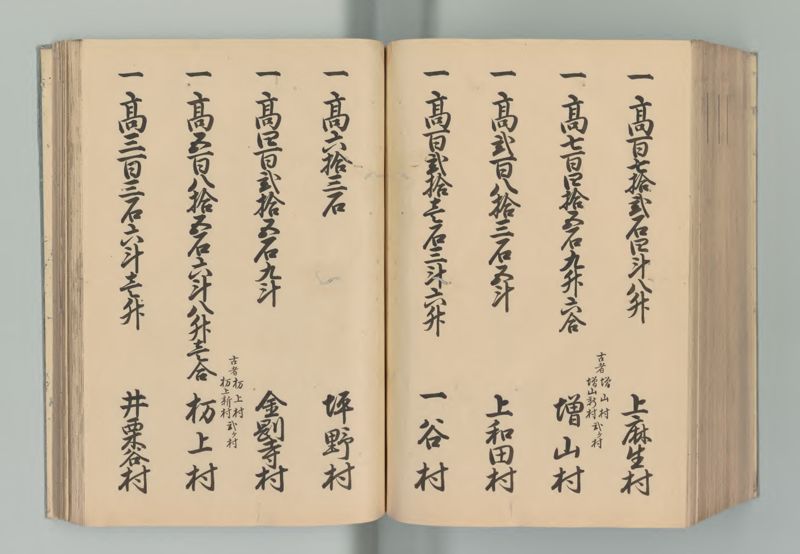 一 高百七拾弐石四斗八升 上麻生村
一 高七百四拾五石九升六合 古者 増山村 増山新村 弐ヶ村 増山村
一 高弐百八拾三石五斗 上和田村
一 高百弐拾壱石三斗六升 一谷村
一 高六拾三石 坪野村
一 高四百弐拾五石九斗 金剛寺村
一 高五百八拾五石六斗八升壱合 古者 枋上村 枋上新村 弐ヶ村 枋上村
一 高三百三石六斗壱升 井栗谷村